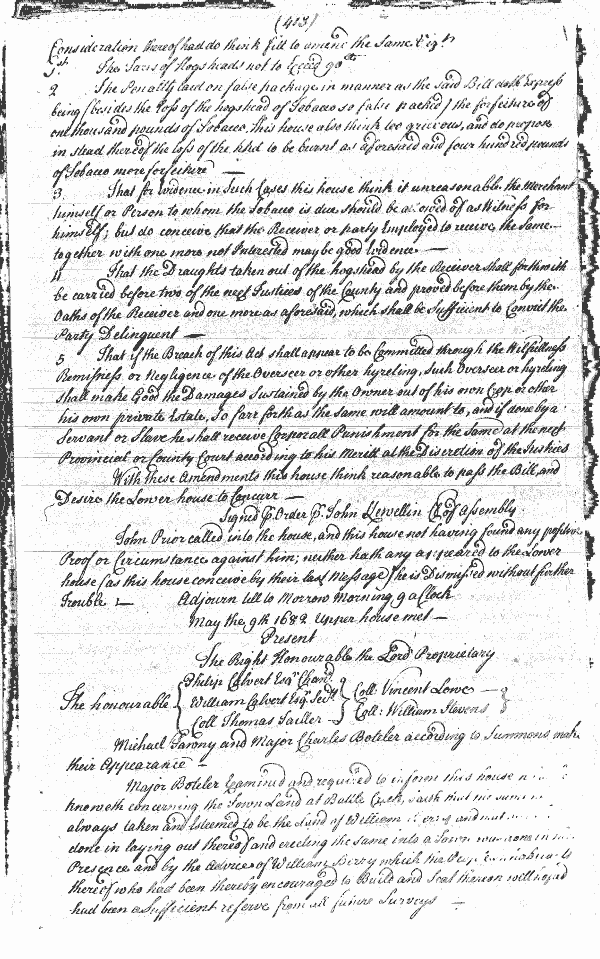 (413)
Consideration thereof had do think fitt to amend the Same Vizt
1st The Sizes of Hogsheads not to Exceed
2 The Penalty laid on false package in manner as the Said Bill doth Express
being (besides the loss of the hogshead of Tobacco so false packed) the forfeiture of
one thousand pounds of Tobacco, this house also think too grievous, and do propose
in stead thereof the loss of the hhd to be burnt as aforesaid and four hundred pounds
of Tobacco more forfeiture —
3 That for Evidence in Such Cases this house think it unreasonable the Merchant
himself or Person to whom the Tobacco is due should be allowed of as Witness for
himself; but do conceive that the Receiver or party Employed to receive the Same
together with one more not Interested may be good Evidence —
4 That the Draughts taken out of the hogshead by the Receiver shall forthwith
be carried before two of the next Justices of the County and proved before them by the
Oaths of the Receiver and one more as aforesaid, which shall be Sufficient to Convict the
Party Delinquent —
5 That if the Breach of this Act shall appear to be Committed through the Wilfullness
Remissness or Negligence of the Overseer or other hyreling, Such Overseer or hyreling
shall make Good the Damages Sustained by the Owner out of his own Crop or other
his own private Estate, So farr forth as the same will amount to, and if done by a
Servant or Slave he shall receive Corporall Punishment for the Same at the next
Provincial or County Court according to his Meritt at the Discretion of the Justices
With these Amendments this house think reasonable to pass the Bill, and
Desire the Lower house to Concurr —
Signed p. Order p. John Llewellin Cl. of assembly
John Prior called into the house, and this house not having found any positive
Proof or Circumstance against him; neither hath any appeared to the Lower
house (as this house conceive by their last Message) he is Dismissed without further
Trouble — Adjourn till to Morrow Morning 9 a Clock
May the 9th 1682 Upper house met —
Present
The Right Honourable the Lord Proprietary
The honourable { Philip Calvert Esqr Chanr
William Calvert Esqr Secry
Coll Thomas Tailler — } { Coll: Vincent Lowe —
Coll: William Stevens }
Michael Tawny and Major Charles Boteler according to Summons make
their Appearance —
Major Boteler Examined and required to inform this house
knoweth concerning the Town Land at Battle Creek, saith that the same
always taken and Esteemed to be the Land of William
done in laying out thereof and erecting the same into a Town was done in
Presence and by the Advice of William Berry which
thereof who had been thereby encouraged to Built and Seat thereon
had been a Sufficient reserve from all future Surveys —